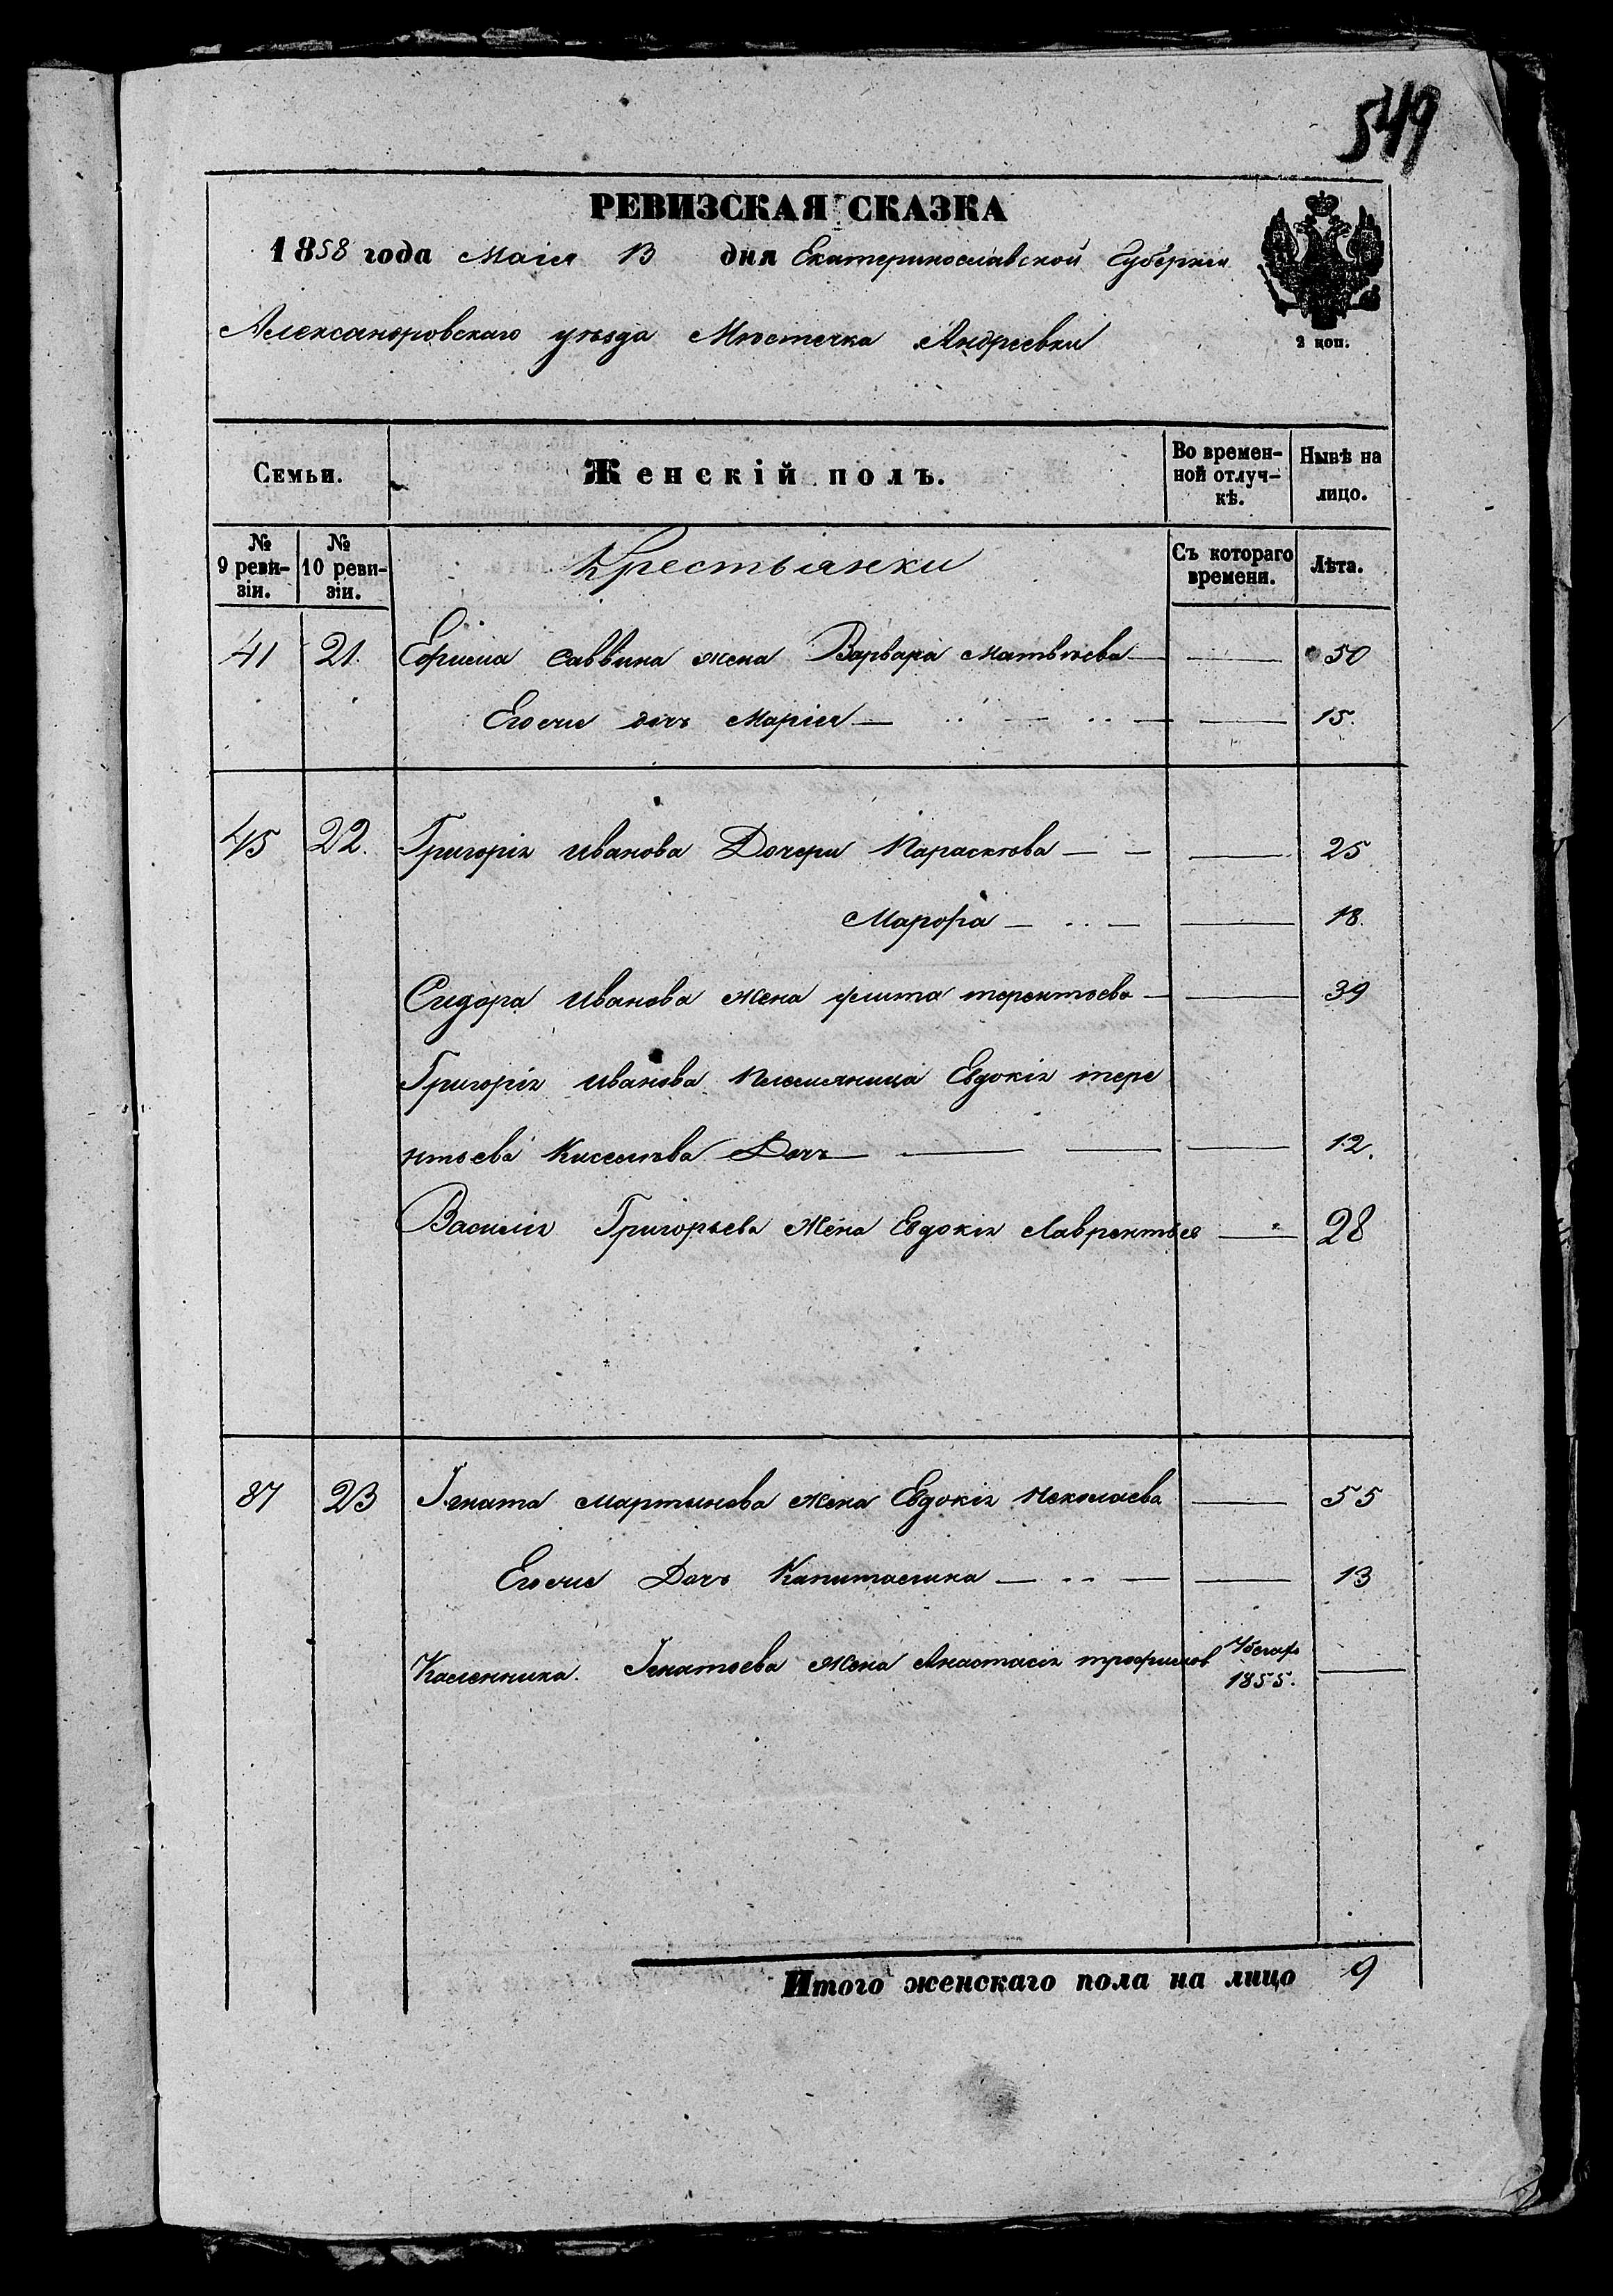 549
РЕВИЗСКАЯ СКАЗКА
1858 года Маія 13 дня Екатеринославской Губерніи
Александровскаго уѣзда Мѣстечка Андреевки
2 коп.
Семьи. Женскій полъ. Во времен-ной отлуч-кѣ. Нынѣ на лицо.
№ 9 реви-зіи. № 10 реви-зіи. Крестьянки Съ котораго времени. Лѣта.
41 21. Ефима Саввина жена Варвара Матвѣева — — 50
Его дочь Марія — — — — 15.
45 22. Григорія Иванова Дочери Парасковѣа — — — 25
Марфа — — — 18.
Сидора Иванова жена терентьева — — 39
Григорія Иванова Племянница Евдокія тере
нтьева Киселева Дочь — — — — 12.
Василія Григорьева Жена Евдокія Лаврентье — 28
87 23 Игната Мартинова жена Евдокія Николаева — 55
Дочь Капиталина — — — 13
Каленника Игнатьева жена Анастасія трофимов 1855. —
Итого женскаго пола на лицо 9